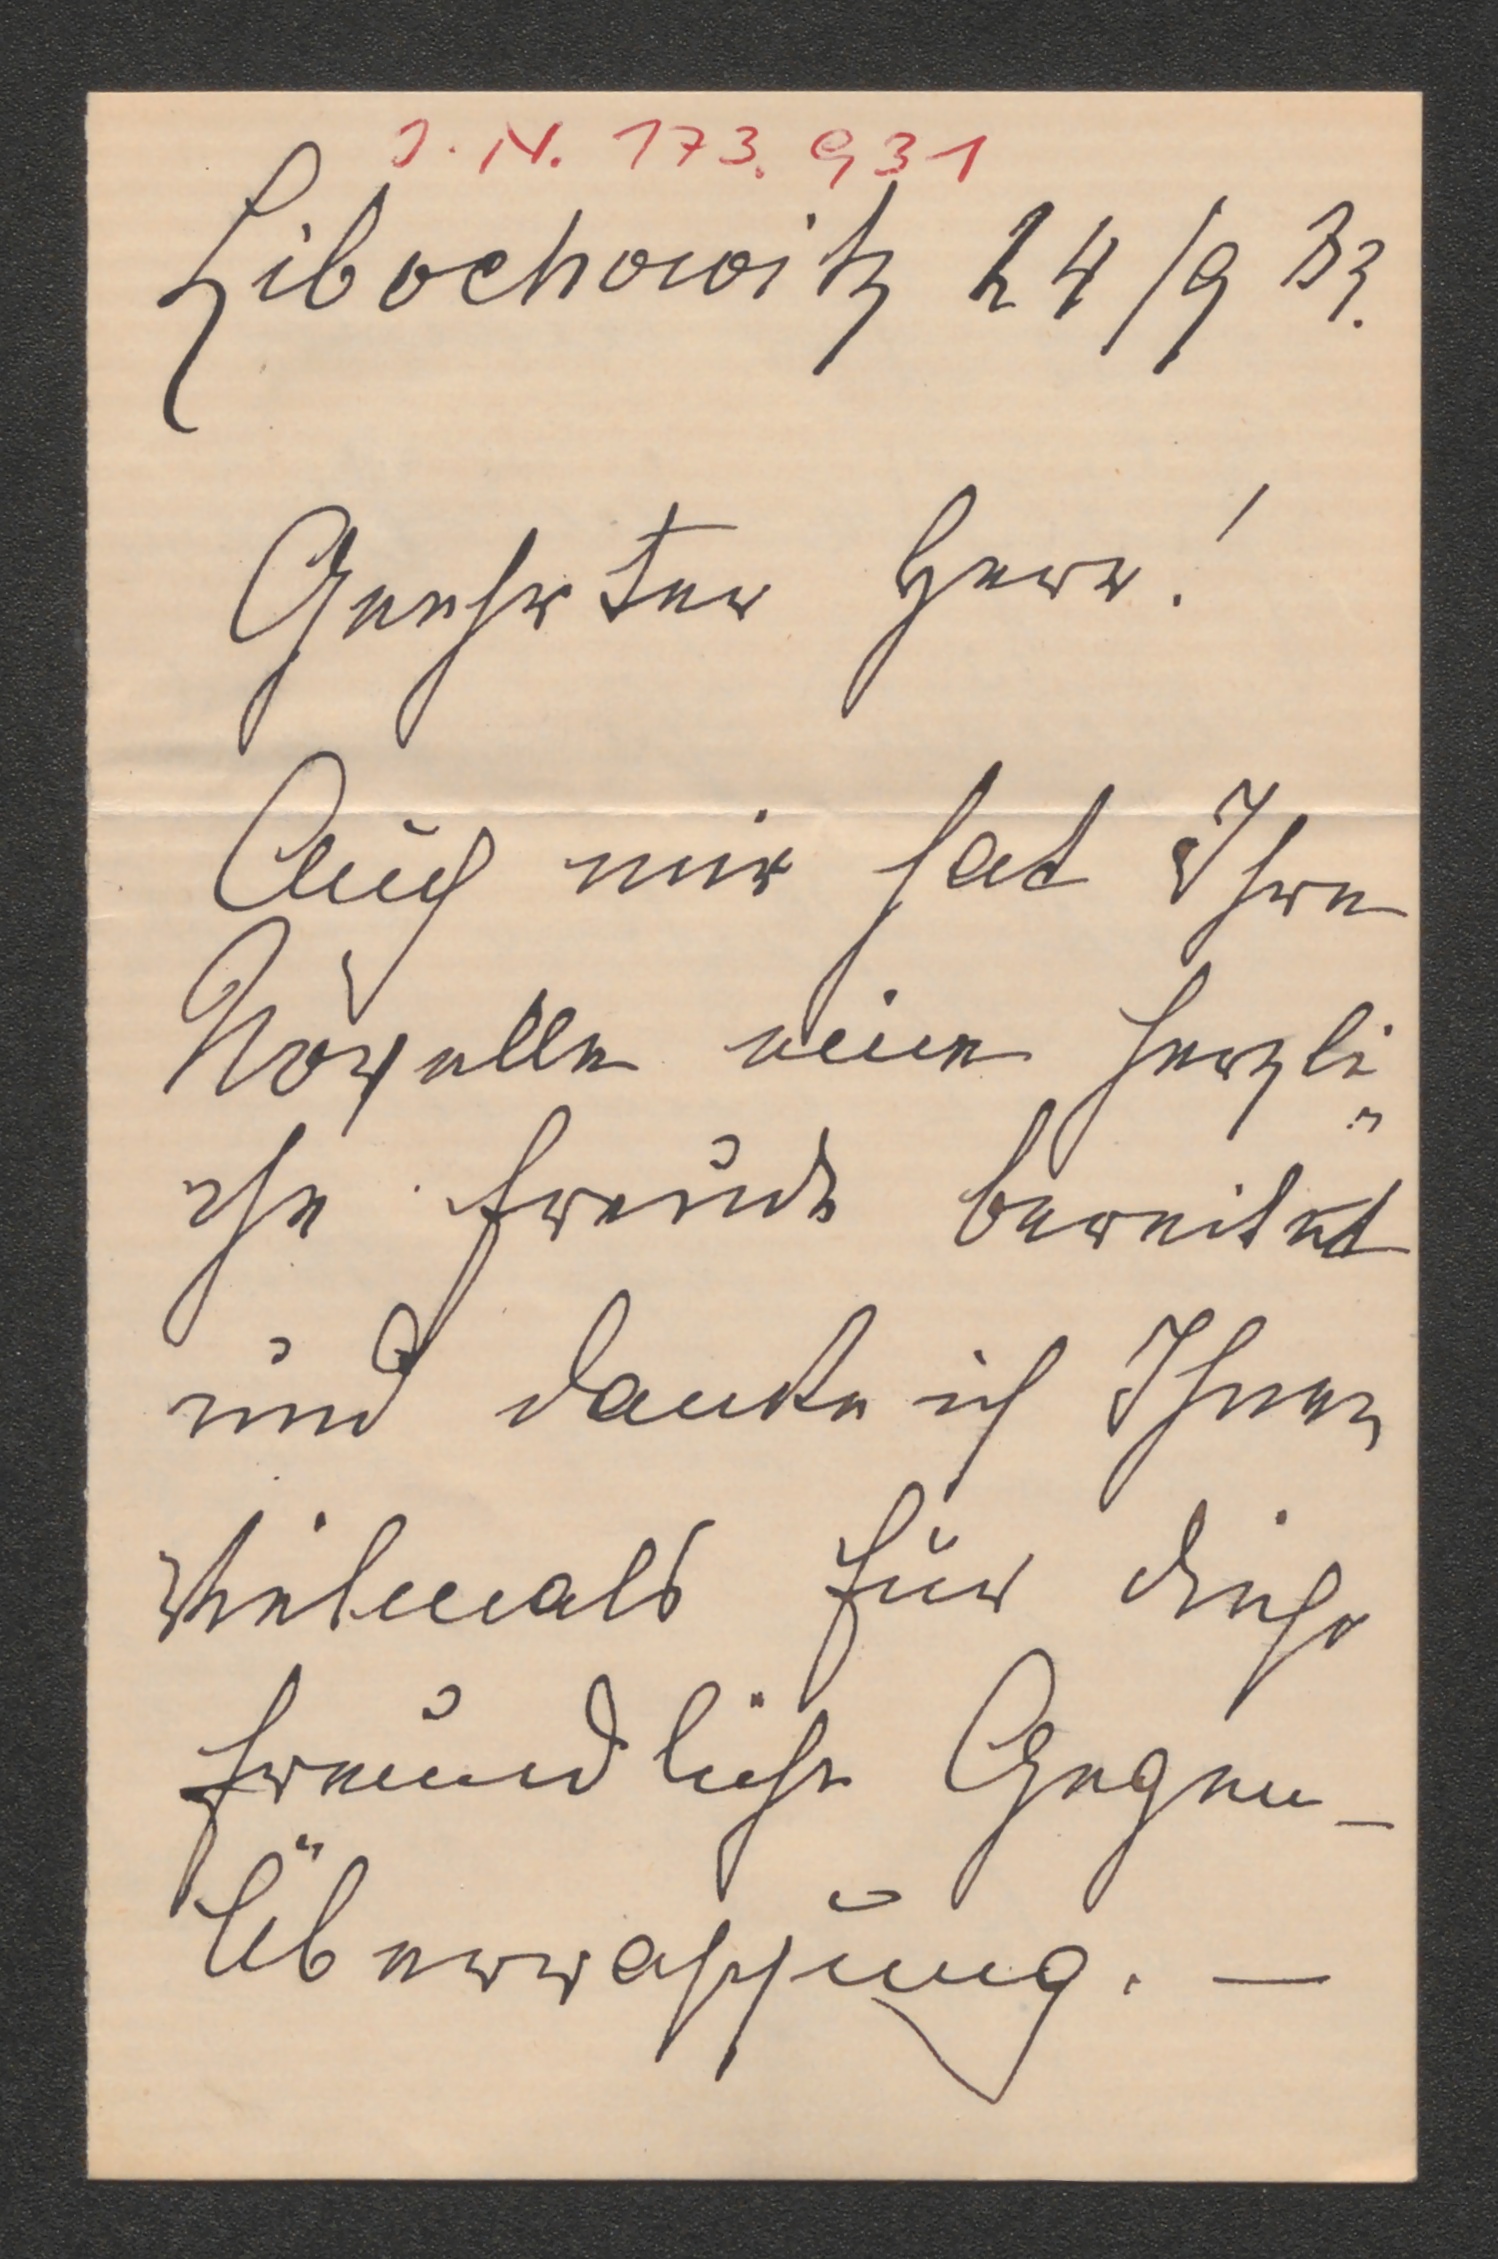 J. N. 173.931
Libochowitz 24/9 83.
Geehrter Herr!
Auch mir hat Ihre
Novelle eine herzli„
che Freude bereitet
und danke ich Ihnen
vielmals für diese
freundliche Gegen-
Überraschung. —